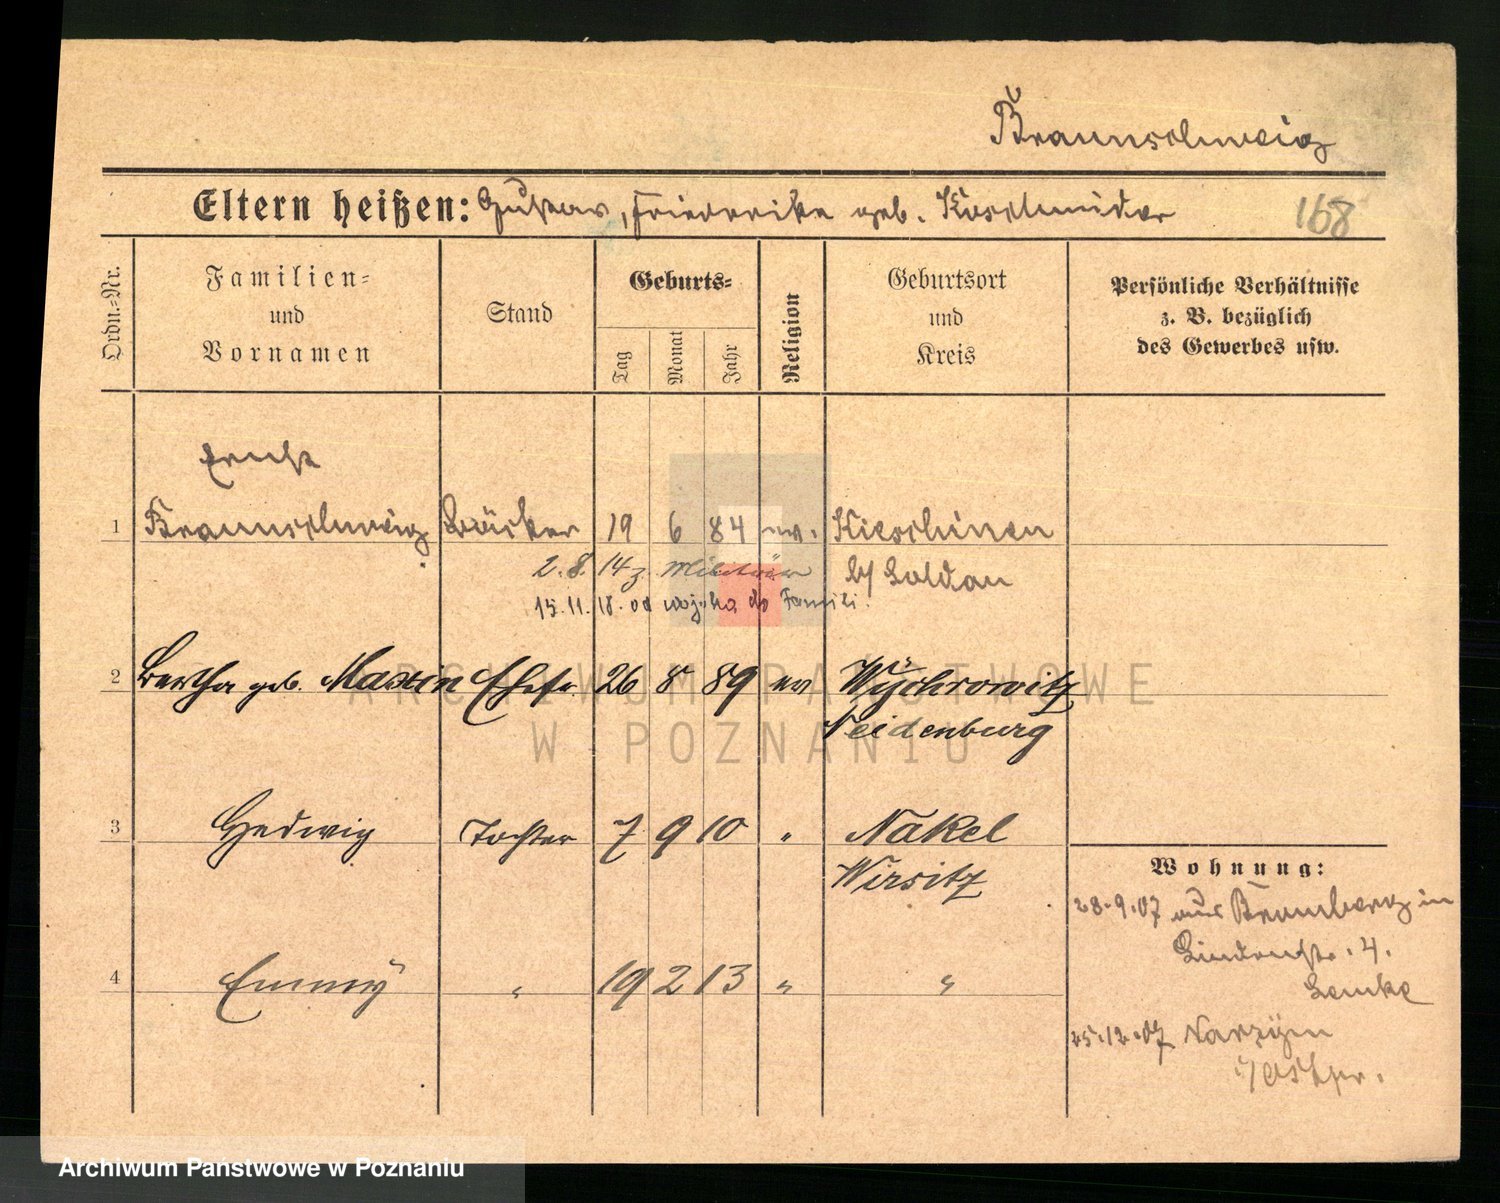 Braunschweig
Eltern heißen: Gustav, Friederike geb. Koschmider
168
Ordn.-Nr.
Familien-
und
Vornamen
Stand
Geburts-
Tag
Monat
Jahr
Religion
Geburtsort
und
Kreis
Persönliche Verhältnisse
z. B. bezüglich
des Gewerbes usw.
Ernst
1 Braunschweig Bäcker 19 6 84 ev. Kieschinen
2.8.14 z. Militär
b/ Soldau
15.11.18. od wojska do Familii.
2 Bertha geb. Maxin Ehefr. 26 8 89 ev Wÿchrowitz
Neidenburg
3 Hedwig Tochter 7 9 10 " Nakel
Wirsitz
4 Emmÿ " 19 2 13 " "
Wohnung:
28.9.07 aus Bromberg in
Lindenstr. 4.
Lemke
25.12.07 Narzÿm
i/Ostpr.
ARCHIWUM PAŃSTWOWE
W POZNANIU
Archiwum Państwowe w Poznaniu